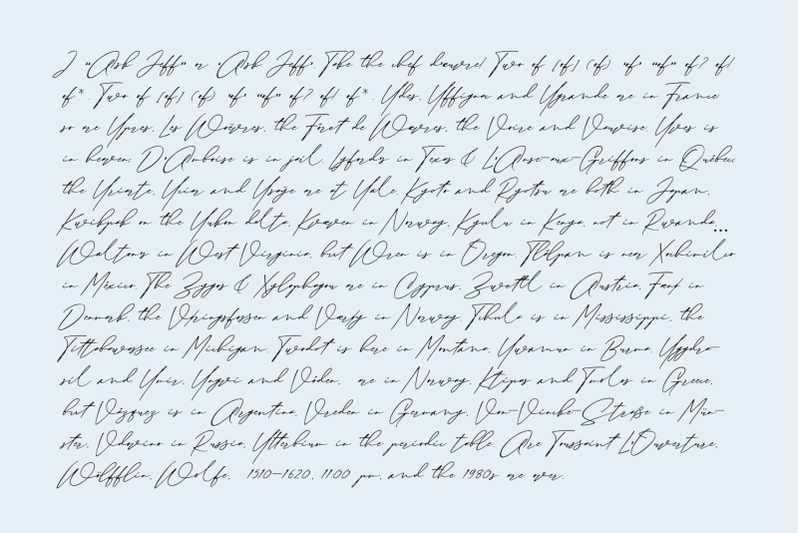 I "Ask Jeff" or 'Ask Jeff'. Take the chef d'œuvre! Two of [of] (of) 'of' "of" of? of!
of*. Two of [of] (of) 'of' "of" of? of! of*. Ydes, Yffignac and Ygrande are in France
so are Ypres, Les Woëvres, the Fôret de Wœvres, the Voire and Vauvise. Yves is
in heaven; D'Amboise is in jail. Lyford's in Texas & L'Anse-aux-Griffons in Québec;
the Yriarte, Yciar and Ysaÿe are at Yale. Kyoto and Ryotsu are both in Japan,
Kwikpak on the Yukon delta, Kvæven in Norway, Kyulu in Kenya, not in Rwanda...
Walton's in West Virginia, but «Wren» is in Oregon. Tlálpan is near Xochimilco
in México. The Zygos & Xylophagou are in Cyprus, Zwettl in Austria, Fænø in
Denmark, the Vøringsfossen and Værøy in Norway. Tchula is in Mississippi, the
Tittabawassee in Michigan. Twodot is here in Montana, Ywamun in Burma. Yggdra-
sil and Ymir, Yngvi and Vóden, are in Norway. Ktipas and Tmolus in Greece,
but Vázquez is in Argentina, Vreden in Germany, Von-Vincke-Straße in Mün-
ster, Vdovino in Russia, Ytterbium in the periodic table. Are Toussaint L'Ouverture,
Wölfflin, Wolfe, 1510–1620, 11:00 pm, and the 1980s are over.